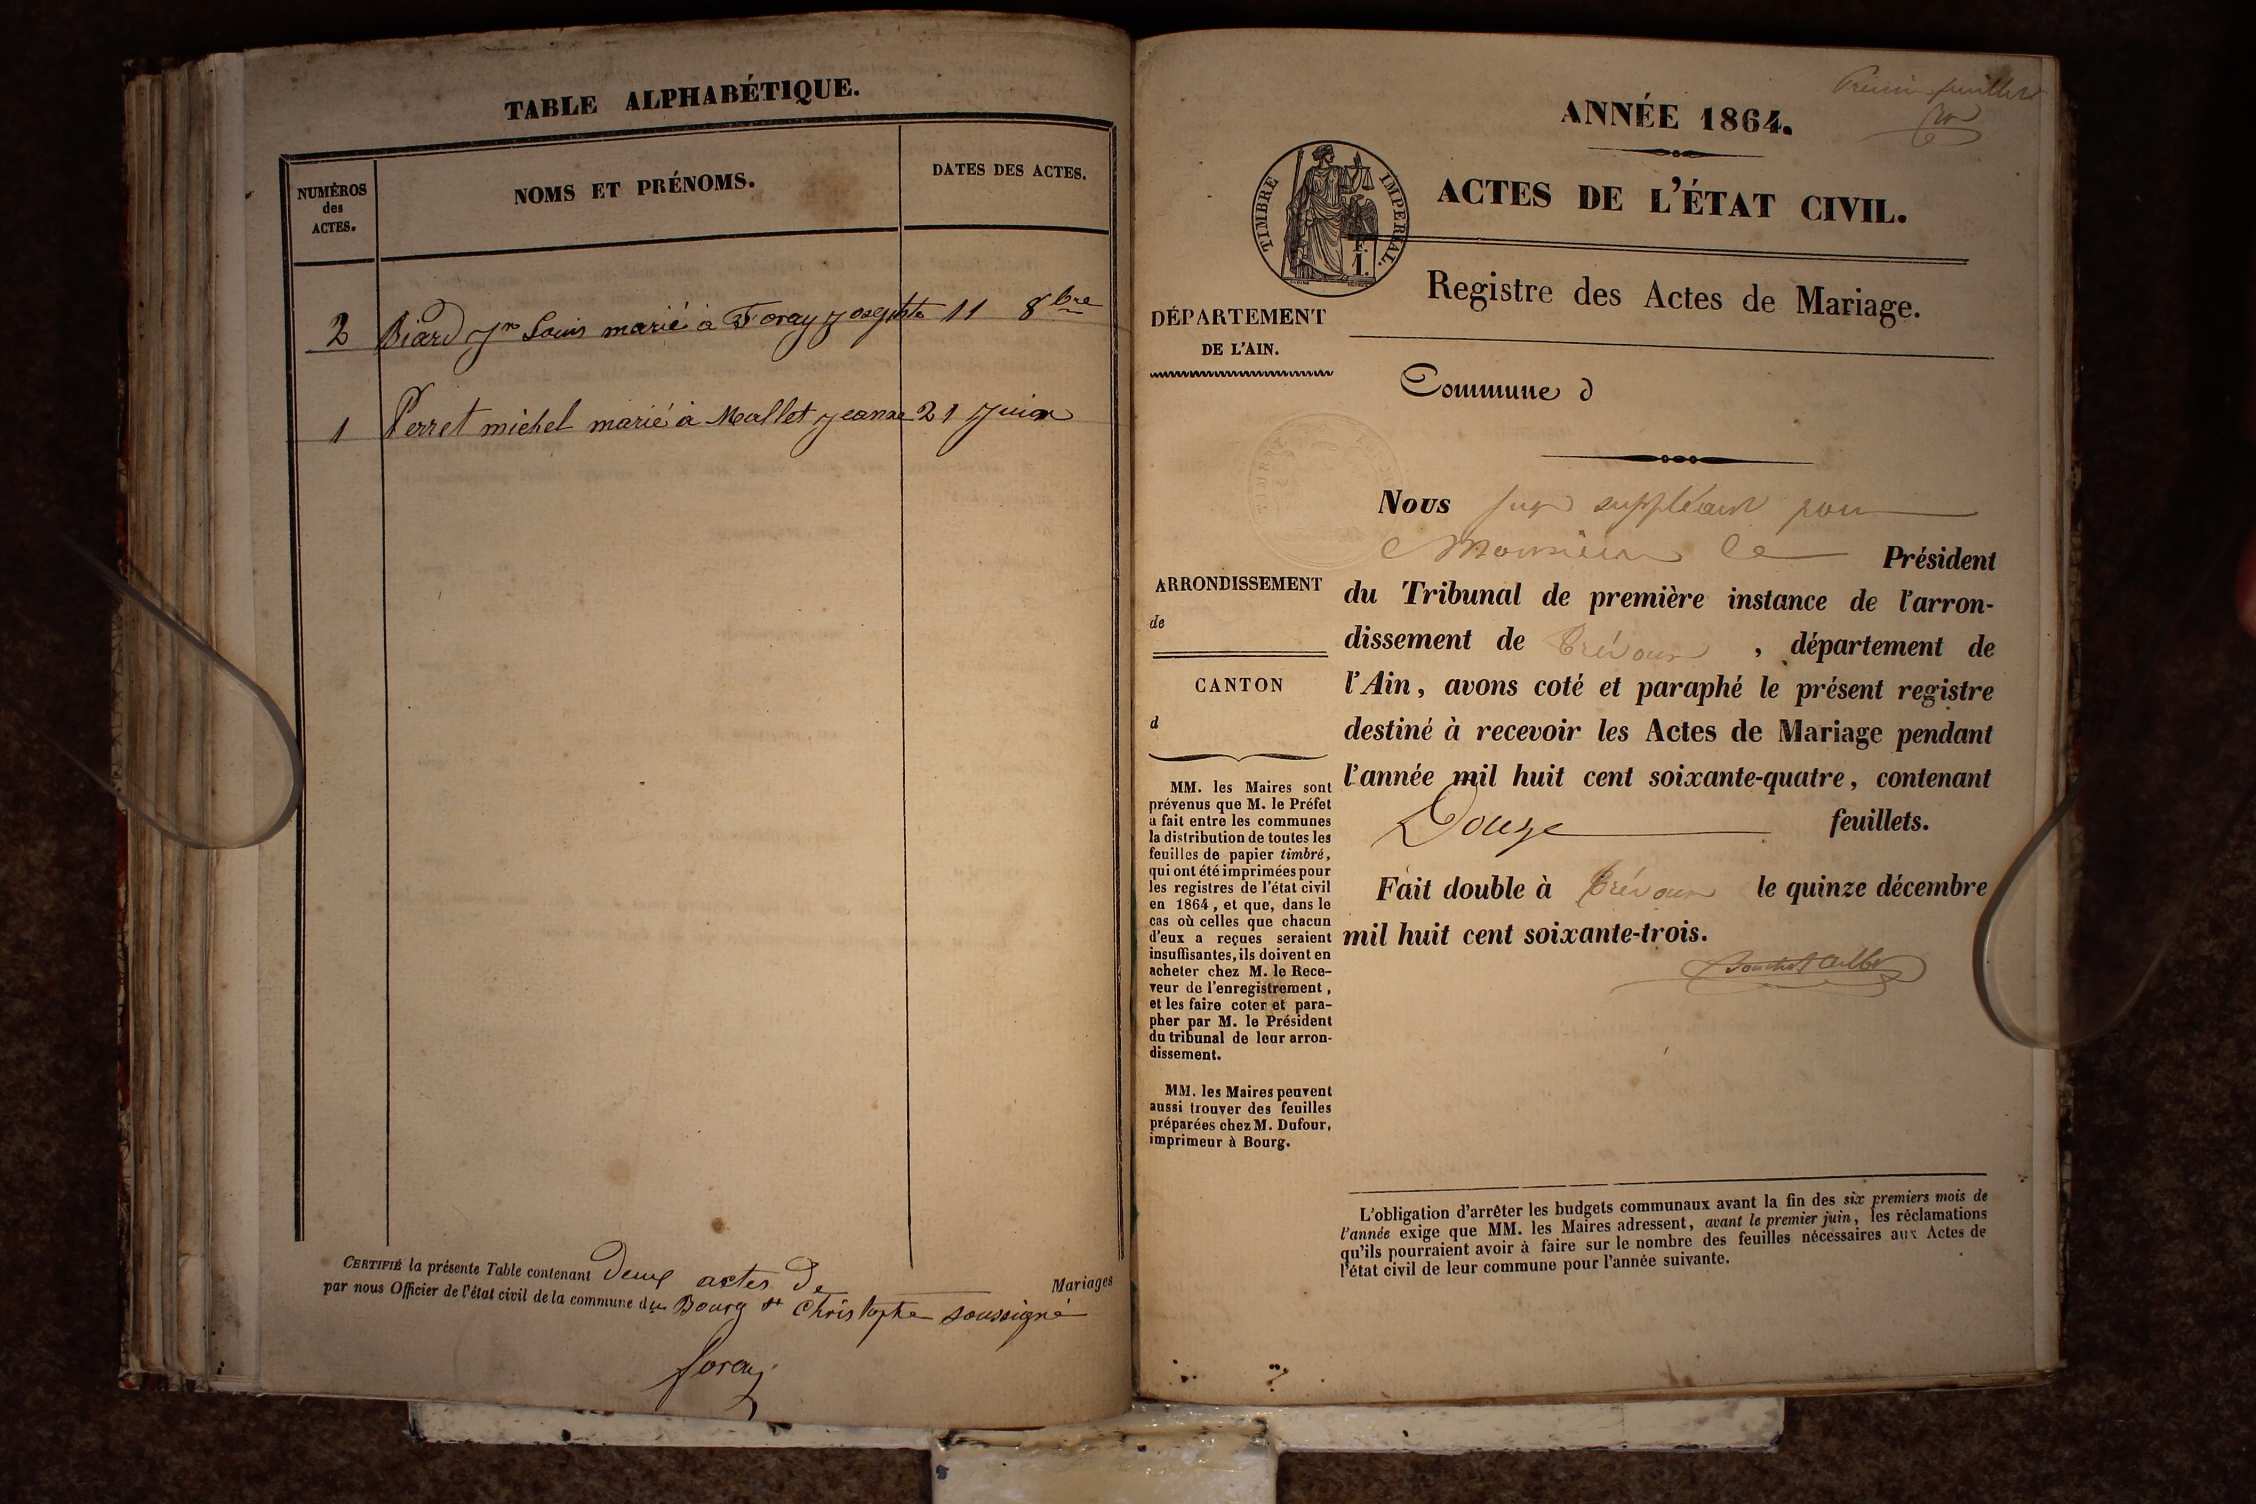 TABLE ALPHABÉTIQUE.
NUMÉROS
des
ACTES.
NOMS ET PRÉNOMS.
DATES DES ACTES.
2 Biard Jn Louis marié à Foray Josephte 11 8bre
1 Perret michel marié à Mallet Jeanne 21 Juin
CERTIFIÉ la présente Table contenant deux actes de Mariages
par nous Officier de l'état civil de la commune du Bourg St Christophe soussigné
foray
Premier feuillet
ANNÉE 1864.
ACTES DE L'ÉTAT CIVIL.
TIMBRE IMPERIAL.
F.
1.
Registre des Actes de Mariage.
DÉPARTEMENT
DE L'AIN.
Commune d
Nous Juge suppléant pour
Monsieur le Président
du Tribunal de première instance de l'arron-
dissement de Trévoux, département de
l'Ain, avons coté et paraphé le présent registre
destiné à recevoir les Actes de Mariage pendant
l'année mil huit cent soixante-quatre, contenant
Douze feuillets.
Fait double à Trévoux le quinze décembre
mil huit cent soixante-trois.
ARRONDISSEMENT
de
CANTON
d
MM. les Maires sont
prévenus que M. le Préfet
a fait entre les communes
la distribution de toutes les
feuilles de papier timbré,
qui ont été imprimées pour
les registres de l'état civil
en 1864, et que, dans le
cas où celles que chacun
d'eux a reçues seraient
insuffisantes, ils doivent en
acheter chez M. le Rece-
veur de l'enregistrement,
et les faire coter et para-
pher par M. le Président
du tribunal de leur arron-
dissement.
MM. les Maires peuvent
aussi trouver des feuilles
préparées chez M. Dufour,
imprimeur à Bourg.
L'obligation d'arrêter les budgets communaux avant la fin des six premiers mois de
l'année exige que MM. les Maires adressent, avant le premier juin, les réclamations
qu'ils pourraient avoir à faire sur le nombre des feuilles nécessaires aux Actes de
l'état civil de leur commune pour l'année suivante.